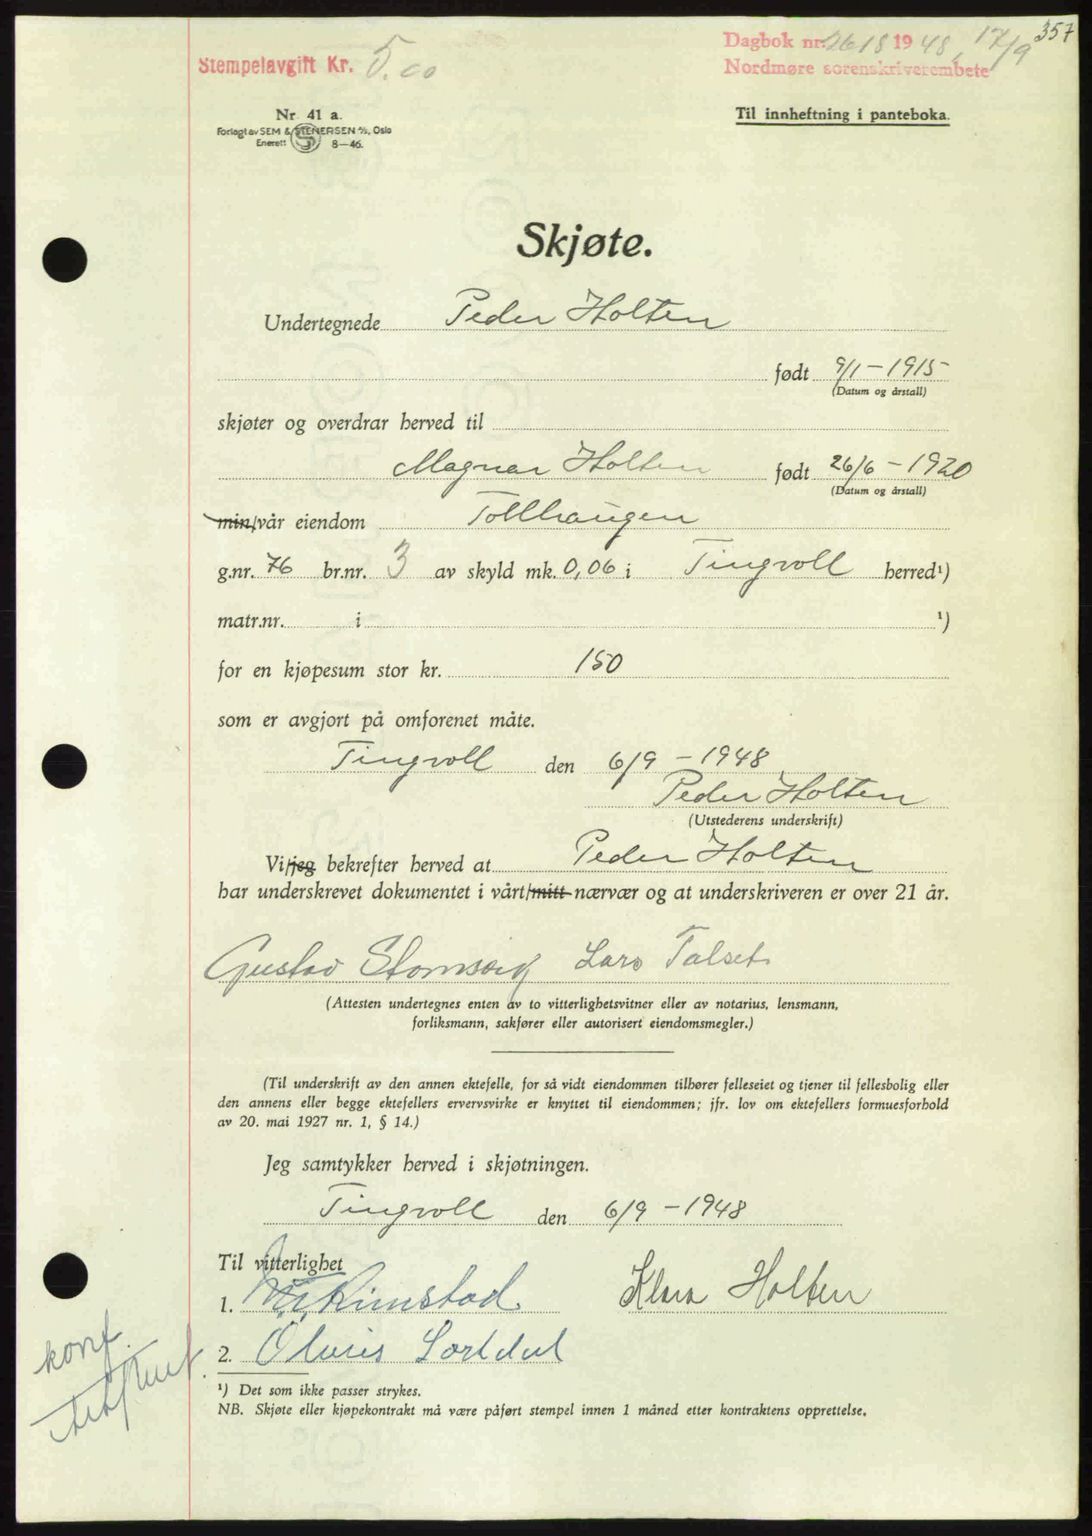 357
Stempelavgift Kr. 5.00
Dagbok nr. 2618 1948, 17/9
Nordmøre sorenskriverembete
Nr. 41 a.
Forlagt av SEM & STENERSEN A/S, Oslo
Enerett 8-46.
Til innheftning i panteboka.
Skjøte.
Undertegnede Peder Holten
født 9/1 - 1915
(Datum og årstall)
skjøter og overdrar herved til
Magnar Holten født 26/6 - 1920
(Datum og årstall)
min/vår eiendom Tollhaugen
g.nr. 76 br.nr. 3 av skyld mk. 0,06 i Tingvoll herred¹)
matr.nr. i ¹)
for en kjøpesum stor kr. 150
som er avgjort på omforenet måte.
Tingvoll den 6/9 - 1948
Peder Holten
(Utstederens underskrift)
Vi/jeg bekrefter herved at Peder Holten
har underskrevet dokumentet i vårt/mitt nærvær og at underskriveren er over 21 år.
Gustav Lars Talset
(Attesten undertegnes enten av to vitterlighetsvitner eller av notarius, lensmann,
forliksmann, sakfører eller autorisert eiendomsmegler.)
(Til underskrift av den annen ektefelle, for så vidt eiendommen tilhører felleseiet og tjener til fellesbolig eller
den annens eller begge ektefellers ervervsvirke er knyttet til eiendommen; jfr. lov om ektefellers formuesforhold
av 20. mai 1927 nr. 1, § 14.)
Jeg samtykker herved i skjøtningen.
Tingvoll den 6/9 - 1948
Til vitterlighet
1. Rimstad Klara Holten
2.
¹) Det som ikke passer strykes.
NB. Skjøte eller kjøpekontrakt må være påført stempel innen 1 måned etter kontraktens opprettelse.